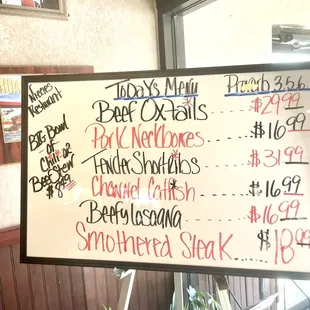 Today's Menu Proverb 3:5,6
Beef Oxtails ..... $29.99
Pork Neckbones $16.99
Tender Short Ribs ... $31.99
Channel Catfish ... $16.99
Beefy Lasagna ..... $16.99
Smothered Steak .... $18.99
Nieces
Restaurant
BIG Bowl
of
Chili or
Beef Stew
$8.49